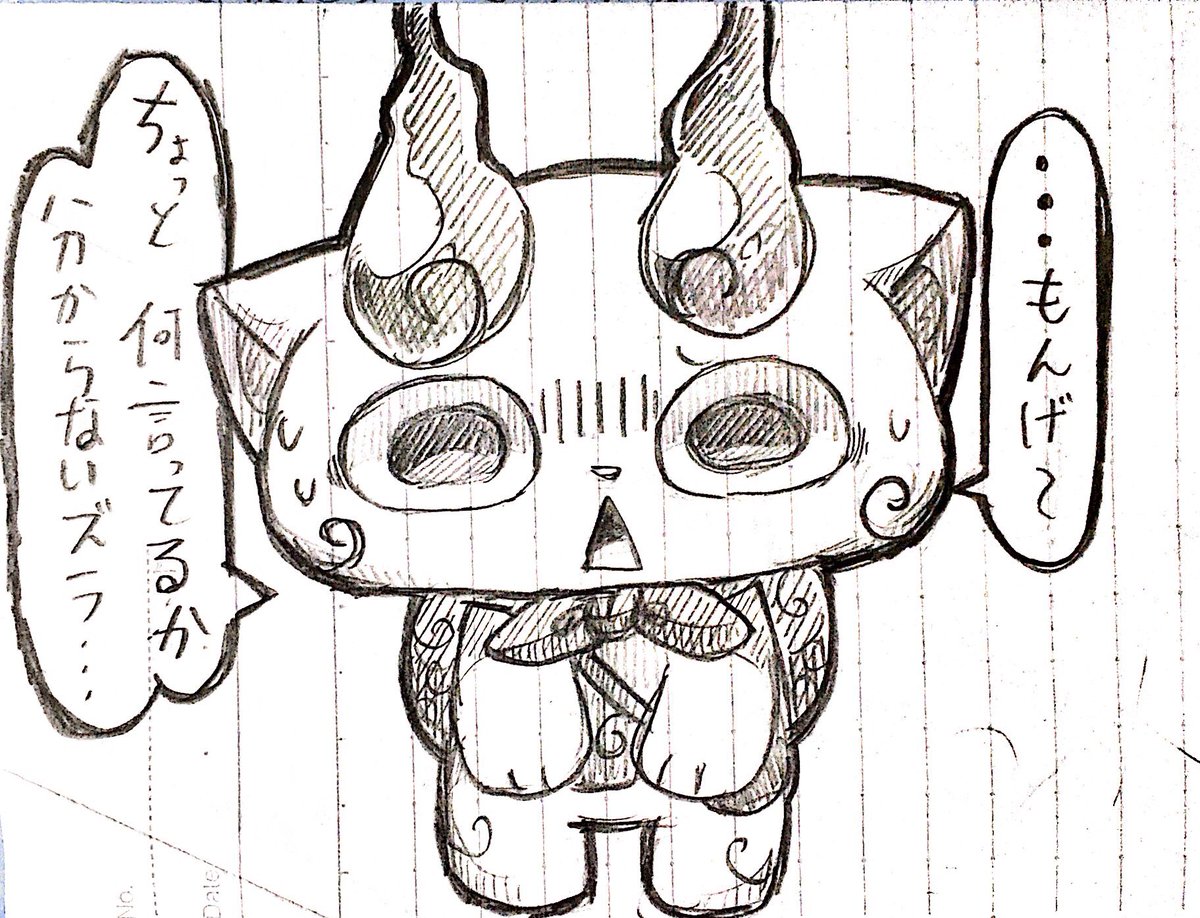 ・・・もんげ〜
ちょっと 何言ってるか
ハカからないズラ・・・・
No.
Date